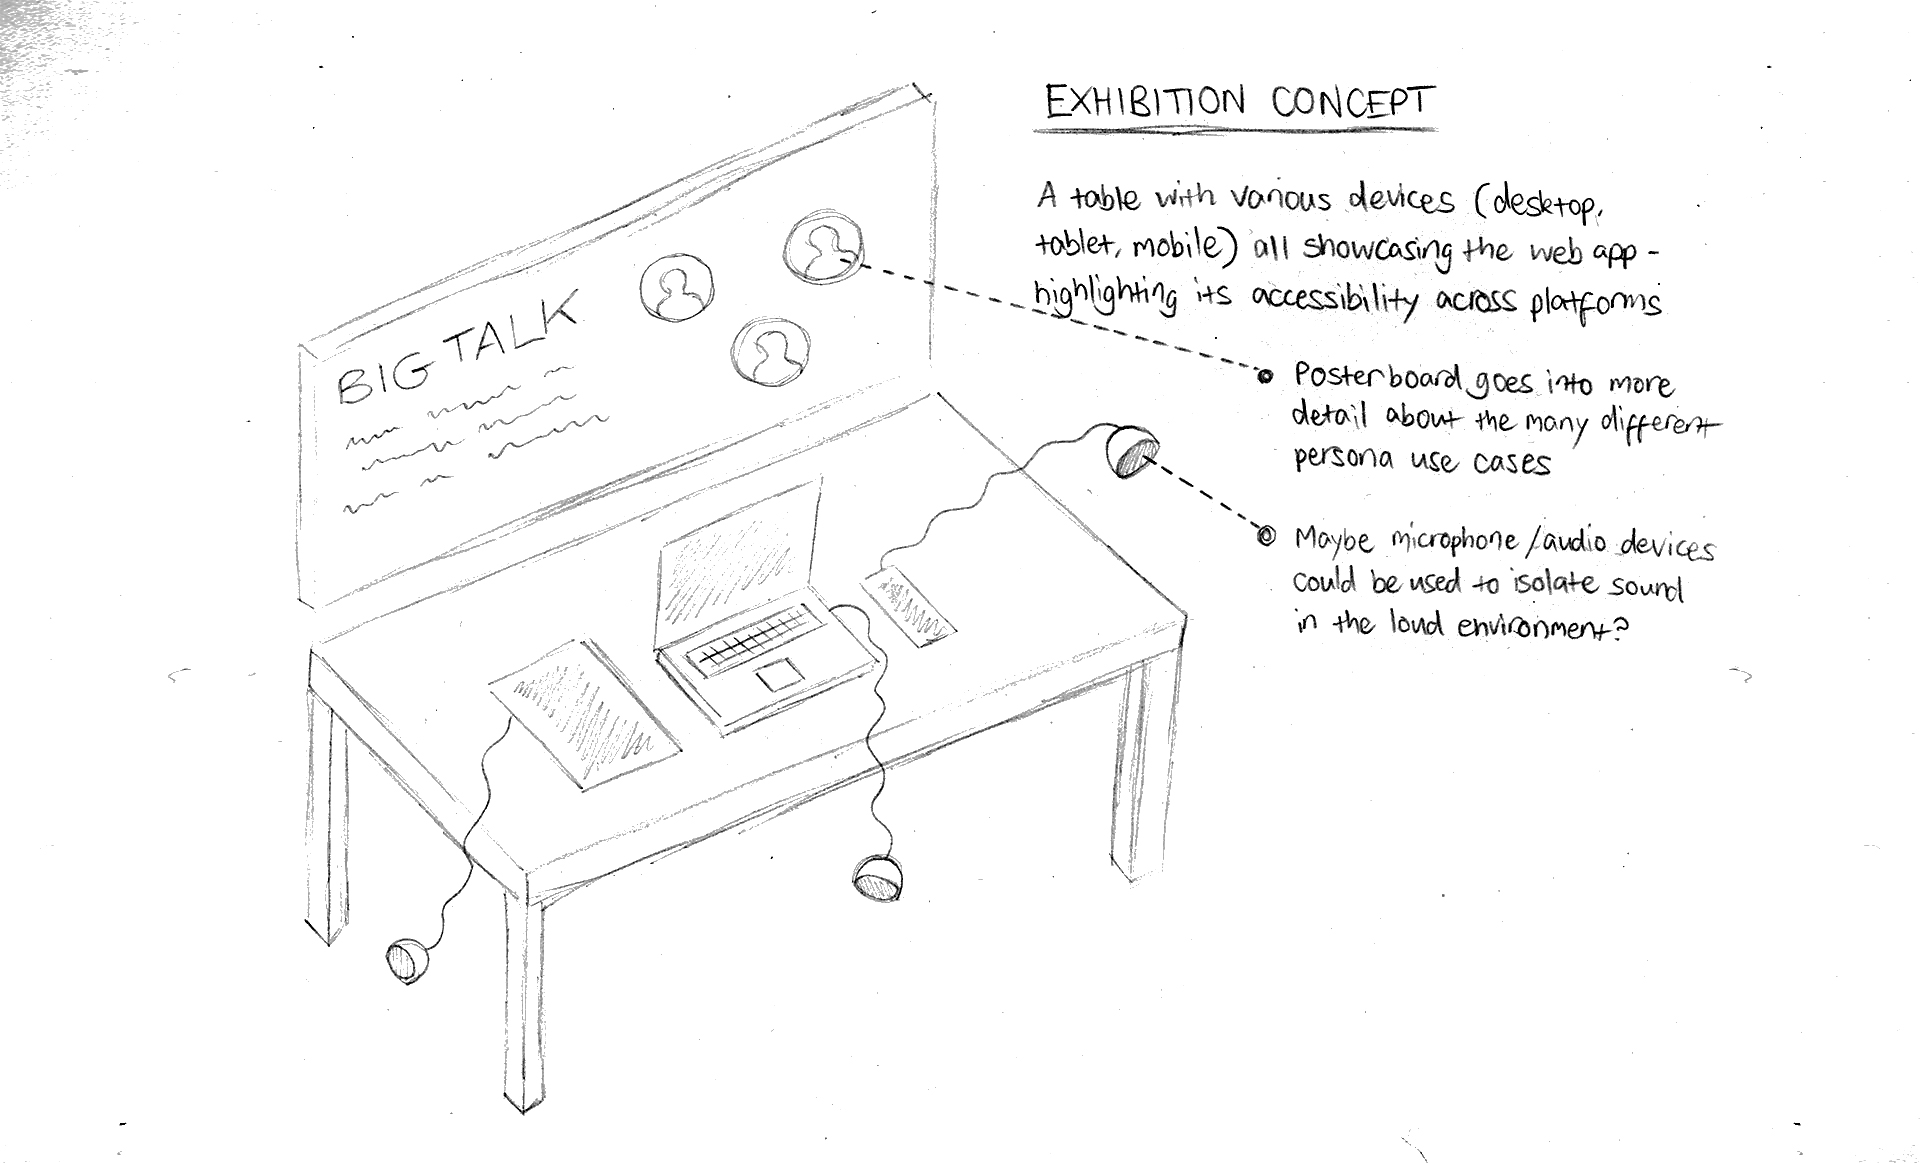 EXHIBITION CONCEPT
A table with various devices (desktop,
tablet, mobile) all showcasing the web app -
highlighting its accessibility across platforms
Posterboard goes into more
detail about the many different
persona use cases
Maybe microphone/audio devices
could be used to isolate sound
in the loud environment?
BIG TALK